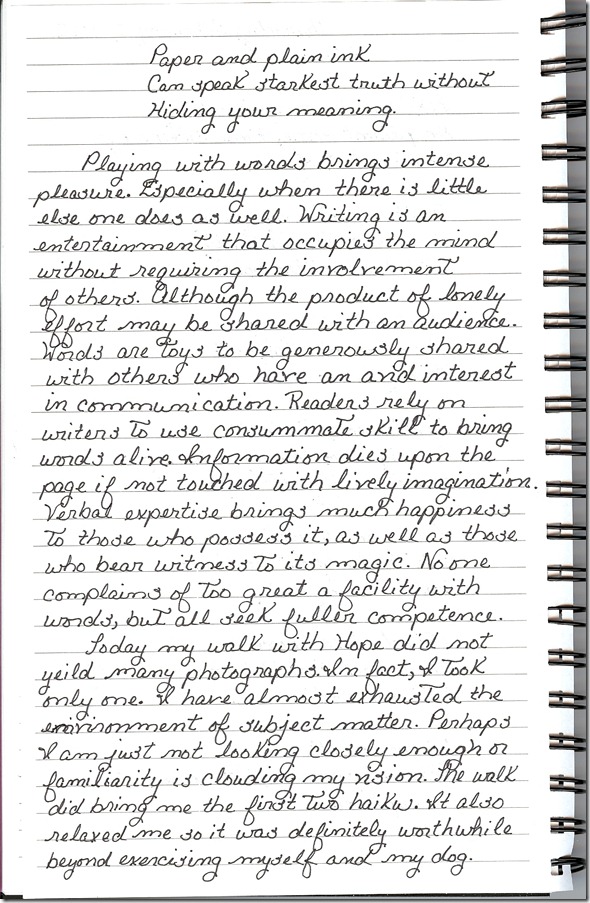 Paper and plain ink
Can speak starkest truth without
Hiding your meaning.
Playing with words brings intense
pleasure. Especially when there is little
else one does as well. Writing is an
entertainment that occupies the mind
without requiring the involvement
of others. Although the product of lonely
effort may be shared with an audience.
Words are toys to be generously shared
with others who have an avid interest
in communication. Readers rely on
writers to use consummate skill to bring
words alive. Information dies upon the
page if not touched with lively imagination.
Verbal expertise brings much happiness
to those who possess it, as well as those
who bear witness to its magic. No one
complains of too great a facility with
words, but all seek fuller competence.
Today my walk with Hope did not
yeild many photographs. In fact, I took
only one. I have almost exhausted the
environment of subject matter. Perhaps
I am just not looking closely enough or
familiarity is clouding my vision. The walk
did bring me the first two haiku. It also
relaxed me so it was definitely worthwhile
beyond exercising myself and my dog.